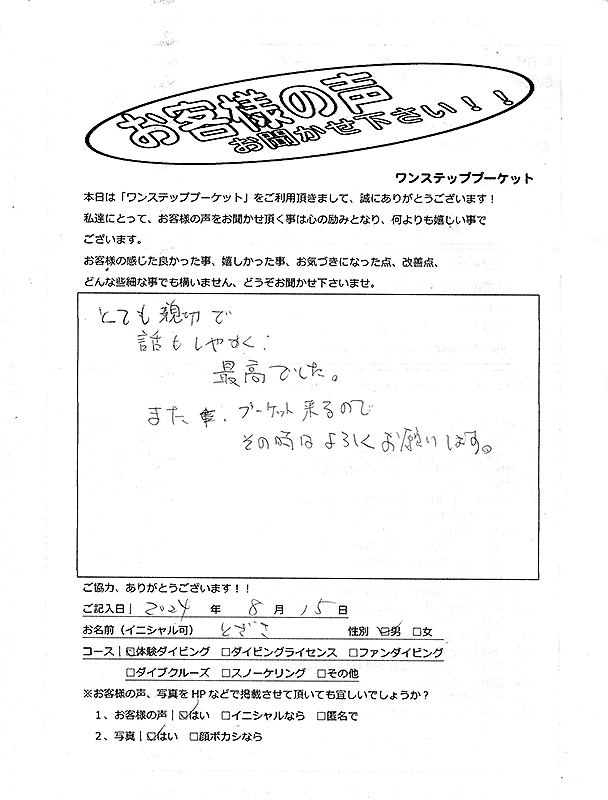 お客様の声
お聞かせ下さい！！
ワンステッププーケット
本日は「ワンステッププーケット」をご利用頂きまして、誠にありがとうございます！
私達にとって、お客様の声をお聞かせ頂く事は心の励みとなり、何よりも嬉しい事で
ございます。
お客様の感じた良かった事、嬉しかった事、お気づきになった点、改善点、
どんな些細な事でも構いません、どうぞお聞かせ下さいませ。
とても親切で
話もしやすく
最高でした。
また プーケット来るので
その時はよろしくお願いします。
ご協力、ありがとうございます！！
ご記入日| 2024 年 8 月 15 日
お名前（イニシャル可） とざき 性別 ☑男 □女
コース|☑体験ダイビング □ダイビングライセンス □ファンダイビング
□ダイブクルーズ □スノーケリング □その他
※お客様の声、写真をHPなどで掲載させて頂いても宜しいでしょうか？
1、お客様の声|☑はい □イニシャルなら □匿名で
2、写真|☑はい □顔ボカシなら